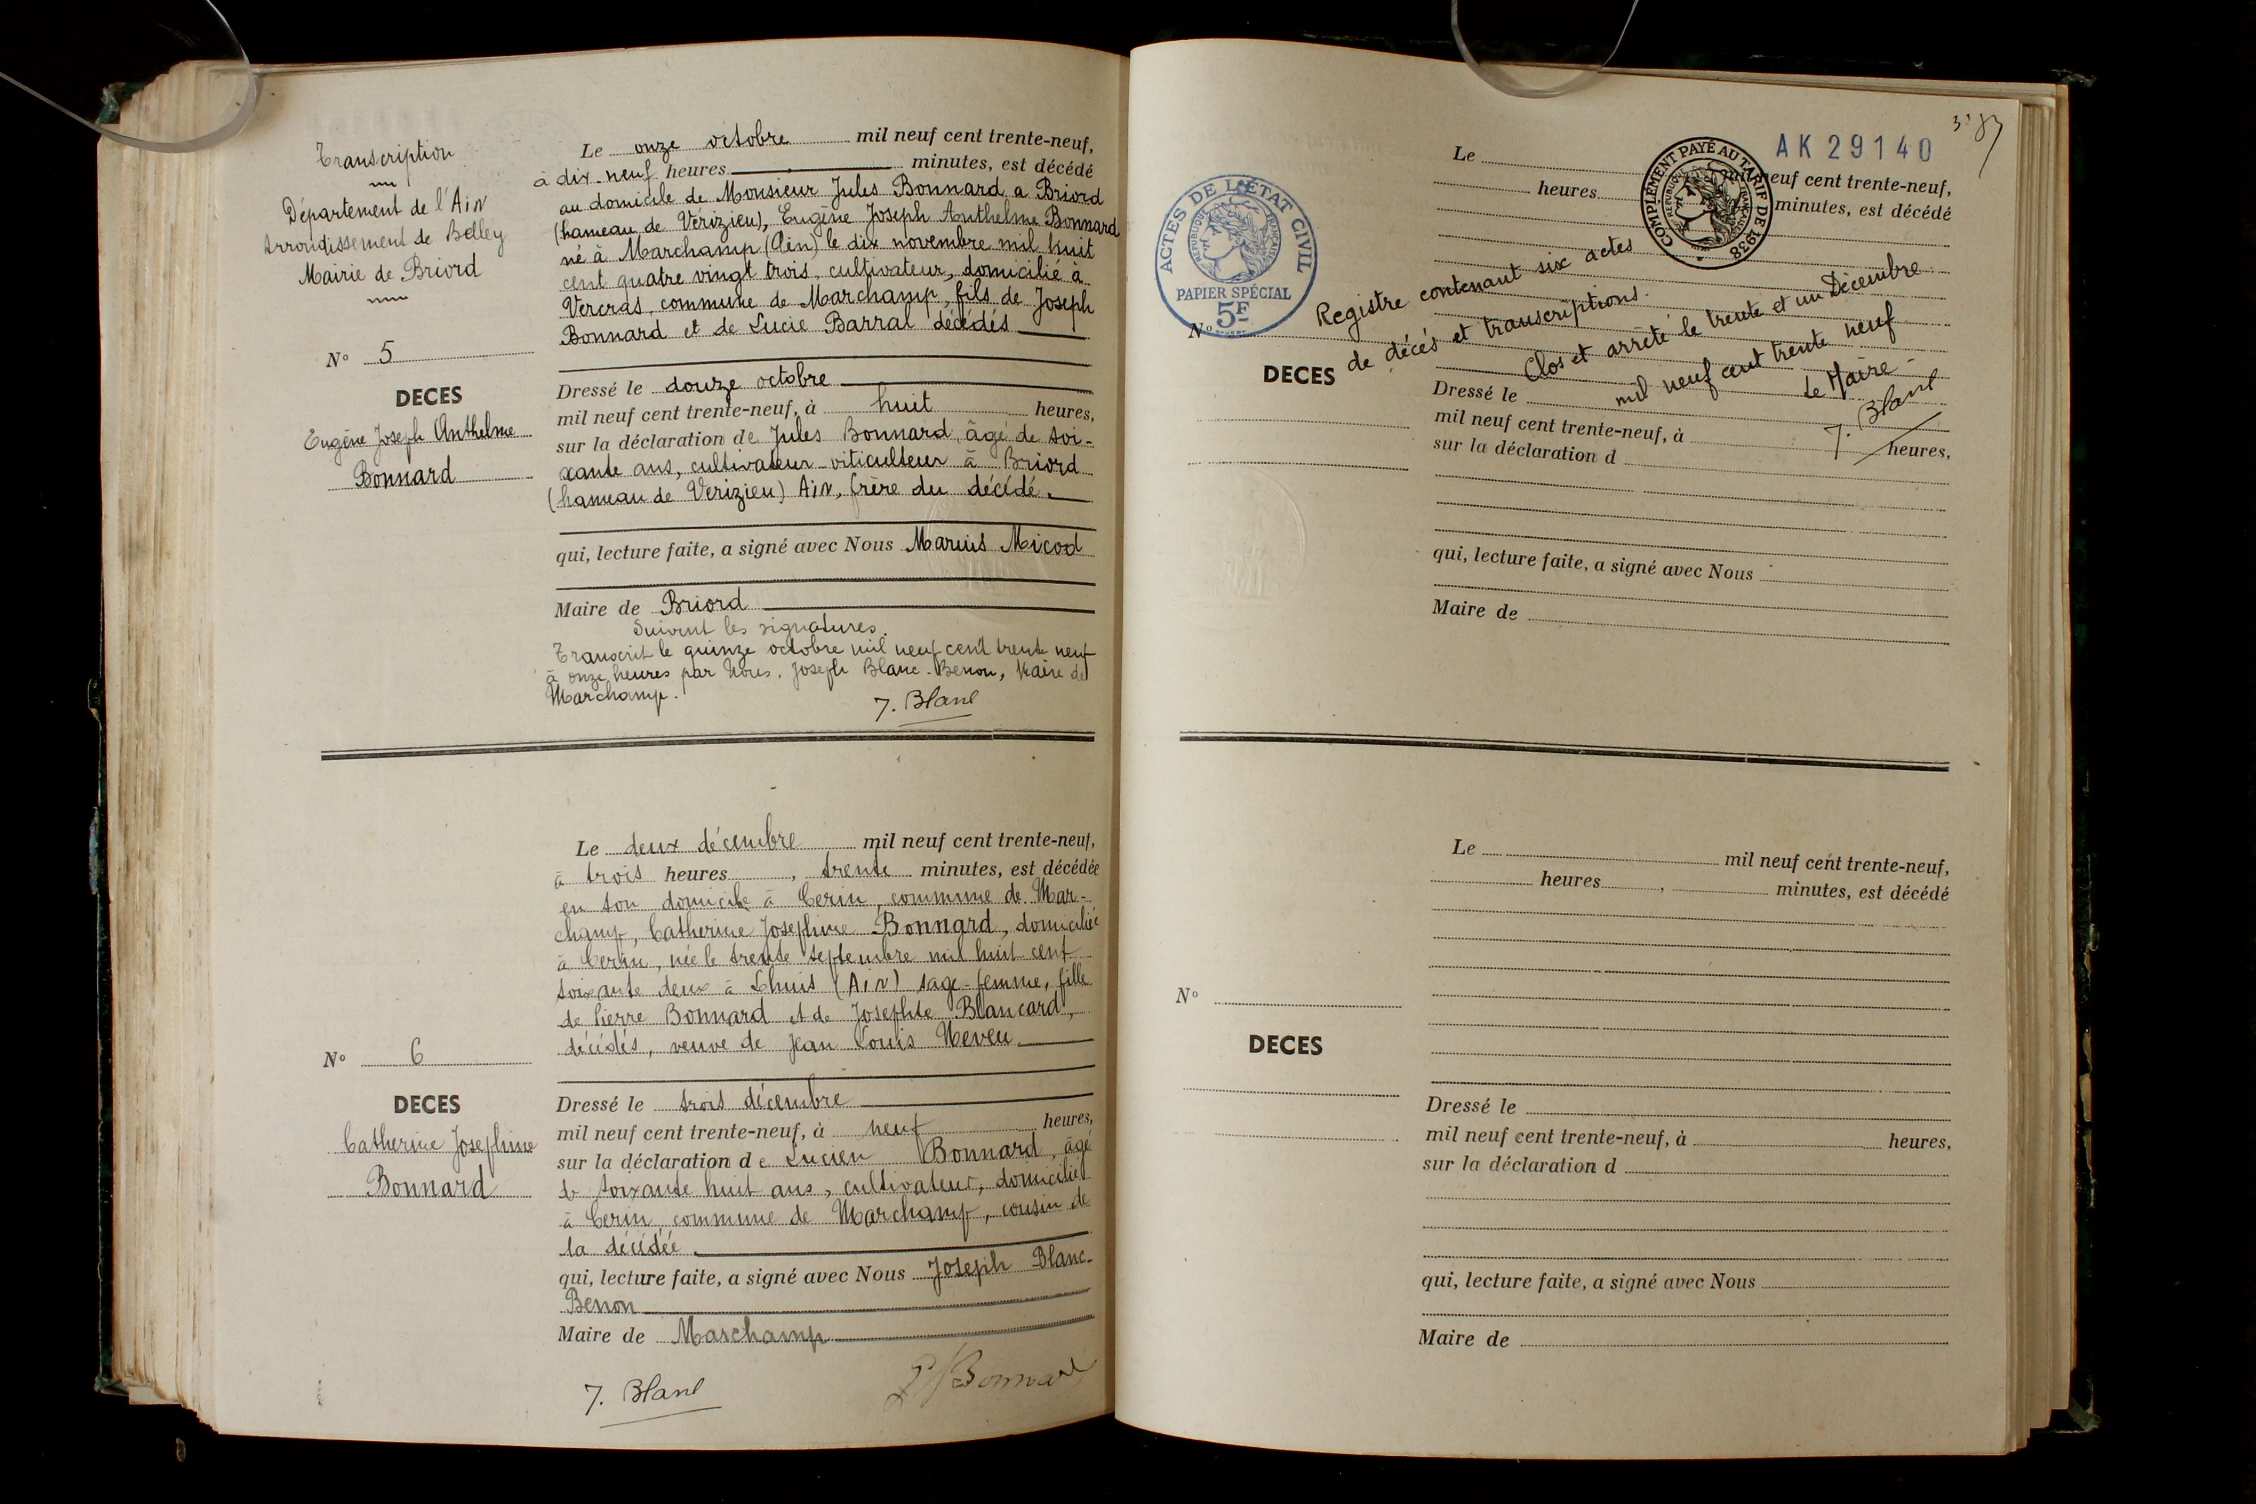 Transcription
Département de l'Ain
Arrondissement de Belley
Mairie de Briord
N° 5
DECES
Eugène Joseph Anthelme
Bonnard
Le onze octobre mil neuf cent trente-neuf,
à dix-neuf heures minutes, est décédé
au domicile de Monsieur Jules Bonnard a Briord
(hameau de Vérizieu), Eugène Joseph Anthelme Bonnard
né à Marchamp (Ain) le dix novembre mil huit
cent quatre vingt trois, cultivateur, domicilié à
Vercras, commune de Marchamp, fils de Joseph
Bonnard et de Lucie Barral décédés
Dressé le douze octobre
mil neuf cent trente-neuf, à huit heures,
sur la déclaration de Jules Bonnard, âgé de soi-
xante ans, cultivateur-viticulteur à Briord
(hameau de Vérizieu) Ain, frère du décédé.
qui, lecture faite, a signé avec Nous Marius Micod
Maire de Briord
Suivent les signatures.
Transcrit le quinze octobre mil neuf cent trente neuf
à onze heures par Nous, Joseph Blanc-Benon, Maire de
Marchamp.
J. Blanc
N° 6
DECES
Catherine Josephine
Bonnard
Le deux décembre mil neuf cent trente-neuf,
à trois heures, trente minutes, est décédée
en son domicile à Cerin, commune de Mar-
champ, Catherine Josephine Bonnard, domiciliée
à Cerin, née le trente septembre mil huit cent
soixante deux à Lhuis (Ain) sage-femme, fille
de Pierre Bonnard et de Josephte Blancard,
décédés, veuve de Jean Louis Neveu
Dressé le trois décembre
mil neuf cent trente-neuf, à neuf heures,
sur la déclaration de Lucien Bonnard, âgé
de soixante huit ans, cultivateur, domicilié
à Cerin, commune de Marchamp, cousin de
la décédée
qui, lecture faite, a signé avec Nous Joseph Blanc-
Benon
Maire de Marchamp
J. Blanc
Bonnard
AK 29140
ACTES DE L'ÉTAT CIVIL
RÉPUBLIQUE FRANÇAISE
PAPIER SPÉCIAL
5F
COMPLÉMENT PAYÉ AU TARIF DE 1938
RÉPUBLIQUE FRANÇAISE
Le mil neuf cent trente-neuf,
heures minutes, est décédé
N°
DECES
Registre contenant six actes
de décès et transcriptions.
Clos et arrêté le trente et un Décembre
mil neuf cent trente neuf
Le Maire
J. Blanc
Dressé le
mil neuf cent trente-neuf, à heures,
sur la déclaration d
qui, lecture faite, a signé avec Nous
Maire de
Le mil neuf cent trente-neuf,
heures, minutes, est décédé
N°
DECES
Dressé le
mil neuf cent trente-neuf, à heures,
sur la déclaration d
qui, lecture faite, a signé avec Nous
Maire de